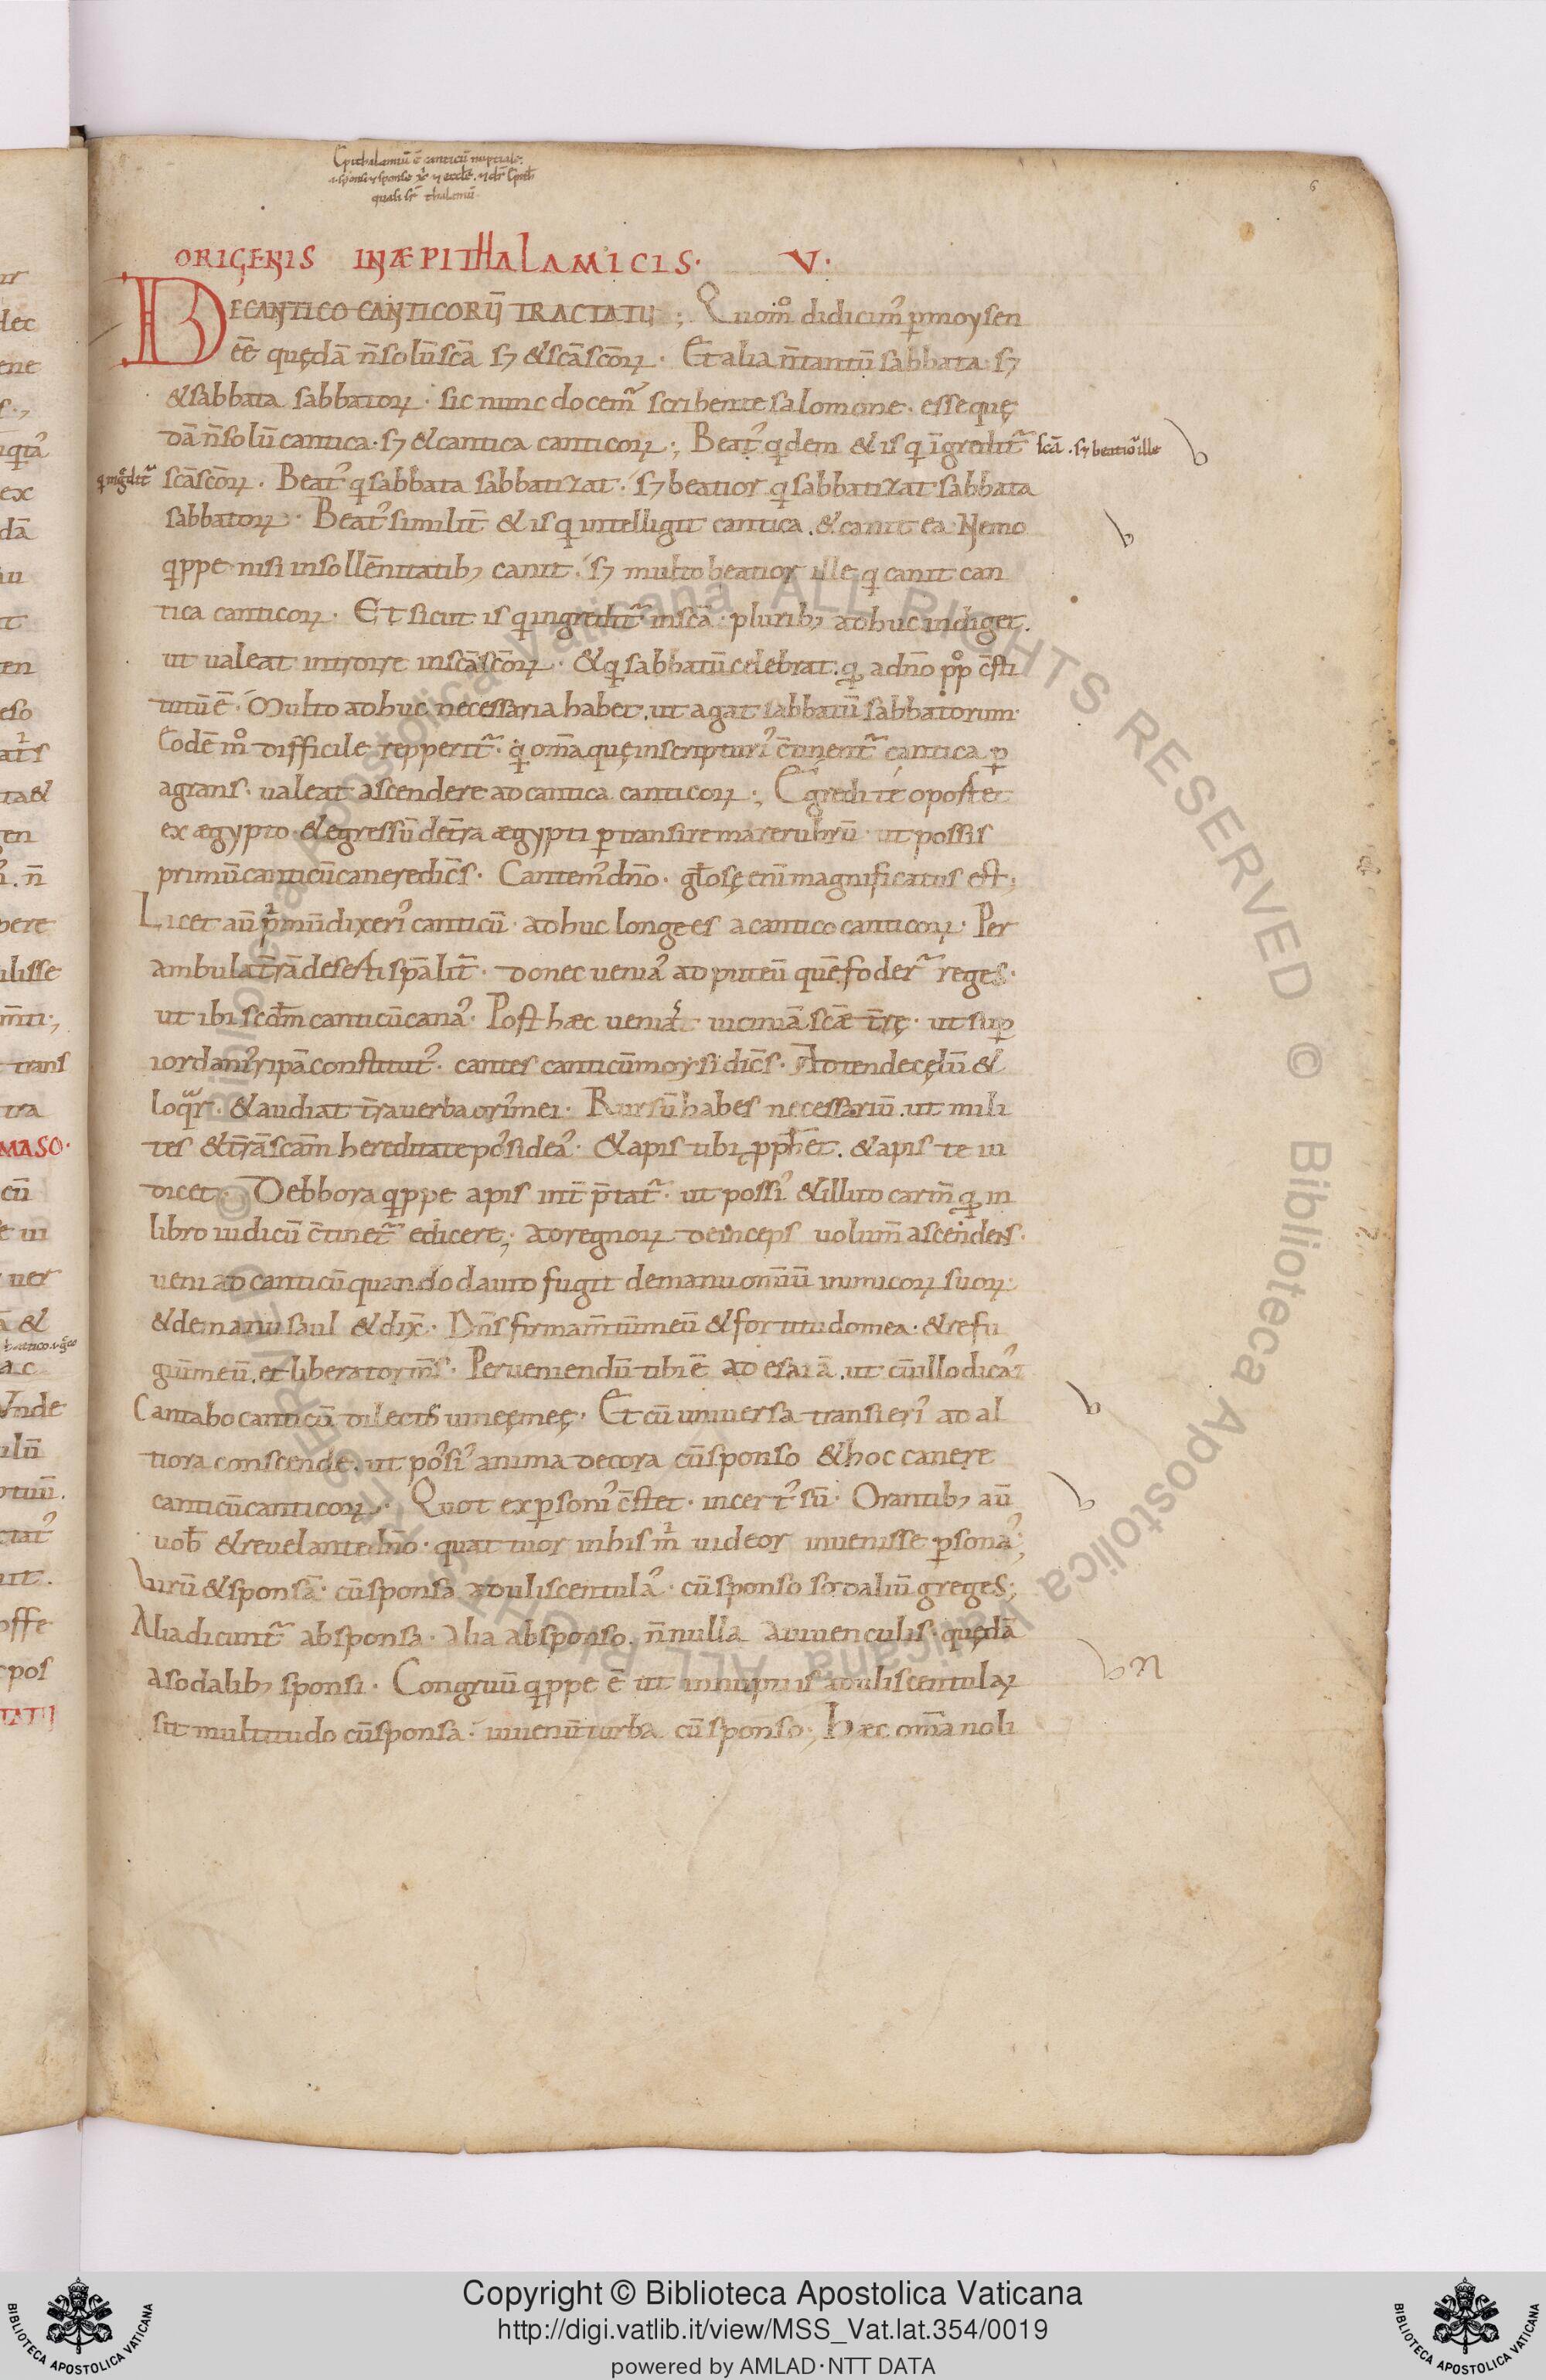 Epithalamiū ē canticū nuptiale.
quasi sr̄ thalamū.
6
ORIGENIS IN ÆPITHALAMICIS. V.
DE CANTICO CANTICORŪ TRACTATU; Quom̊ didicim᾽ p̱ moysen
eē̄ quędā n̄ solū scā sꝫ & scā scōꝝ. Et alia n̄ tantū sabbata sꝫ
& sabbata sabbatoꝝ. sic nunc docem᷑ scribente salomone. esse quę
dā n̄ solū cantica. sꝫ & cantica canticoꝝ; Beat᾽ qⁱdem & is qⁱ īgredit᷑ scā. sꝫ beatior ille
qⁱ ingͣdit᷑ scā scōꝝ. Beat᾽ qⁱ sabbata sabbatizat. sꝫ beatior qⁱ sabbatizat sabbata
sabbatoꝝ. Beat᾽ similit̄ & is qⁱ intelligit cantica. & canit ea. Nemo
qⁱppe nisi in sollēnitatibꝫ canit. sꝫ multo beatior ille qⁱ canit can
tica canticoꝝ. Et sicut is qⁱ ingredit᷑ in scā. pluribꝫ adhuc indiget.
ut ualeat introire in scā scōꝝ. & qⁱ sabbatū celebrat. qđ a dn̄o pp̊ c̄sti
tutū ē. Multo adhuc necessaria habet. ut agat sabbatū sabbatorum.
Eodē m̊ difficile repperit᷑. qⁱ om̄a quę in scripturi᾽ c̄tinent᷑ cantica p̱
agrans. ualeat ascendere ad cantica canticoꝝ; Egredi te oportet
ex ægypto. & egressū de t̄ra ægypti p̱transire mare rubrū. ut possis
primū canticū canere dic̄s. Cantem᾽ dn̄o. gl̄ose enī magnificatus est;
Licet aū pͥmū dixeri᾽ canticū. adhuc longe es a cantico canticoꝝ. Per
ambula t̄rā deserti sp̄alit̄. donec uenia᾽ ad puteū quē foder᷑ reges.
ut ibi scd̄m canticū cana᾽. Post hæc ueni ad uiciniā scæ t̄rę. ut sup̱
iordani᾽ ripā constitut᾽. cantes canticū moysi dic̄s. Adtende cęlū &
loqͣr. & audiat t̄ra uerba ori᾽ mei. Rursū habes necessariū. ut mili
tes & t̄rā scām hereditate po᾽sidea᾽. & apis tibi pph̄et. & apis te iu
dicet. Debbora qⁱppe apis int̄p̄tat᷑. ut possi᾽ & illud carm̄ qđ in
libro iudicū c̄tinet᷑ edicere; ad regnoꝝ deinceps uolum̄ ascendens.
ueni ad canticū quando dauid fugit de manu om̄iū inimicoꝝ suoꝝ.
& de manu saul & dix̄. Dn̄s firmam̄tū meū & fortitudo mea. & refu
giū meū. et liberator m̄s. Perueniendū tibi ē ad esaiā. ut cū illo dica᾽
Cantabo canticū dilecto uineę meę. Et cū uniuersa transieri᾽ ad al
tiora conscende. ut po᾽si᾽ anima decora cū sponso & hoc canere
canticū canticoꝝ. Quot ex p̱soni᾽ c̄stet. incert᾽ sū. Orantibꝫ aū
uob̄ & reuelante dn̄o. quattuor in his mͥ uideor inuenisse p̱sona᾽;
Uirū & sponsā. cū sponsa aduliscentula᾽. cū sponso sodaliū greges;
Alia dicunt᷑ ab sponsa. alia ab sponso. n̄nulla a iuuenculis. quędā
a sodalibꝫ sponsi. Congruū qⁱppe ē ut in nuptiis aduliscentulaꝝ
sit multitudo cū sponsa. iuuenū turba cū sponso; Hæc om̄a noli
© Biblioteca Apostolica Vaticana ALL RIGHTS RESERVED © Biblioteca Apostolica Vaticana ALL RIGHTS RESERVED
Copyright © Biblioteca Apostolica Vaticana
http://digi.vatlib.it/view/MSS_Vat.lat.354/0019
powered by AMLAD·NTT DATA
BIBLIOTECA APOSTOLICA VATICANA
BIBLIOTECA APOSTOLICA VATICANA